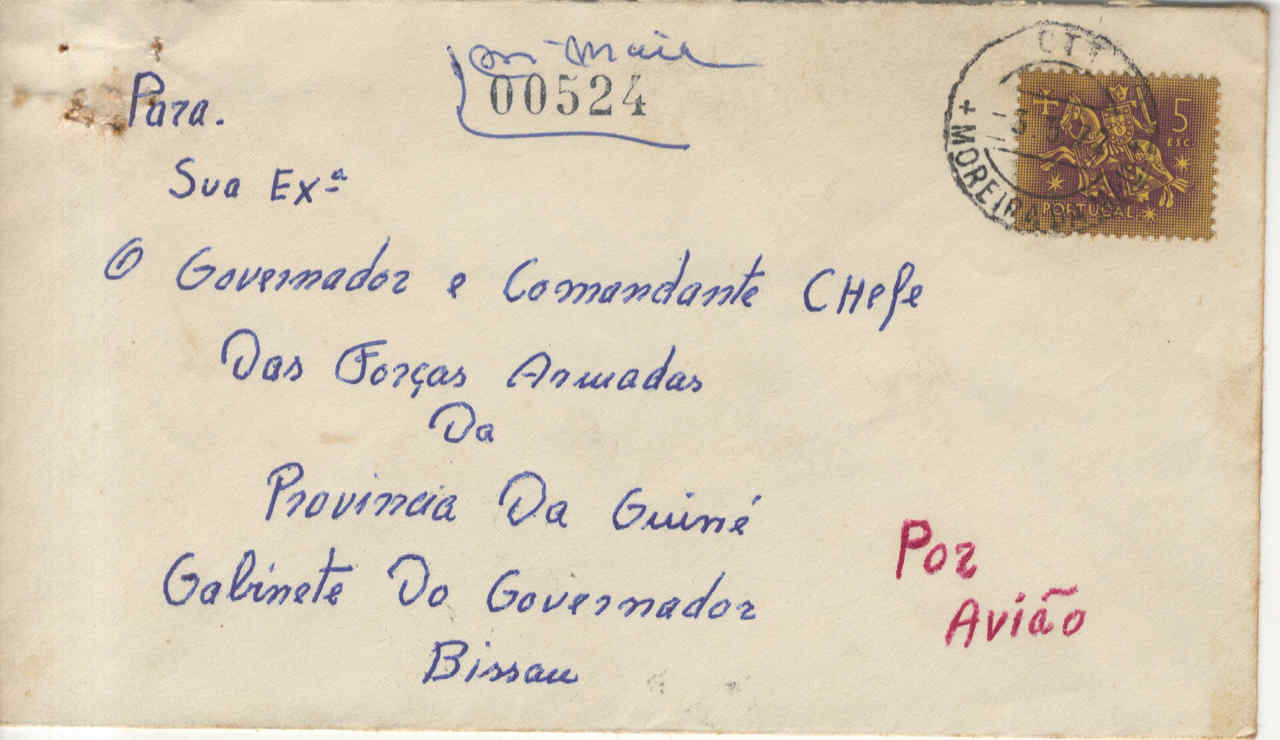 Maia
00524
CTT
5
ESC.
+ MOREIRA
PORTUGAL
Para.
Sua Exª
O Governador e Comandante CHefe
Das Forças Armadas
Da
Provincia Da Guiné
Gabinete Do Governador
Bissau
Por
Avião